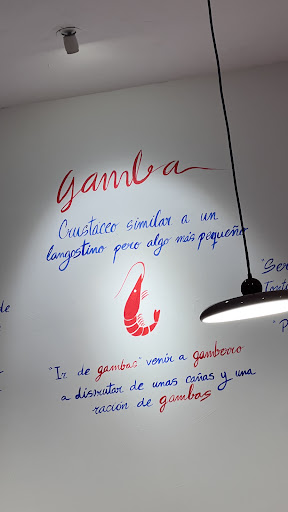 gamba
Crustáceo similar a un
langostino pero algo más pequeño
"Ser
de
"Ir de gambas" venir a gamberro
a disfrutar de unas cañas y una
ración de gambas
"P